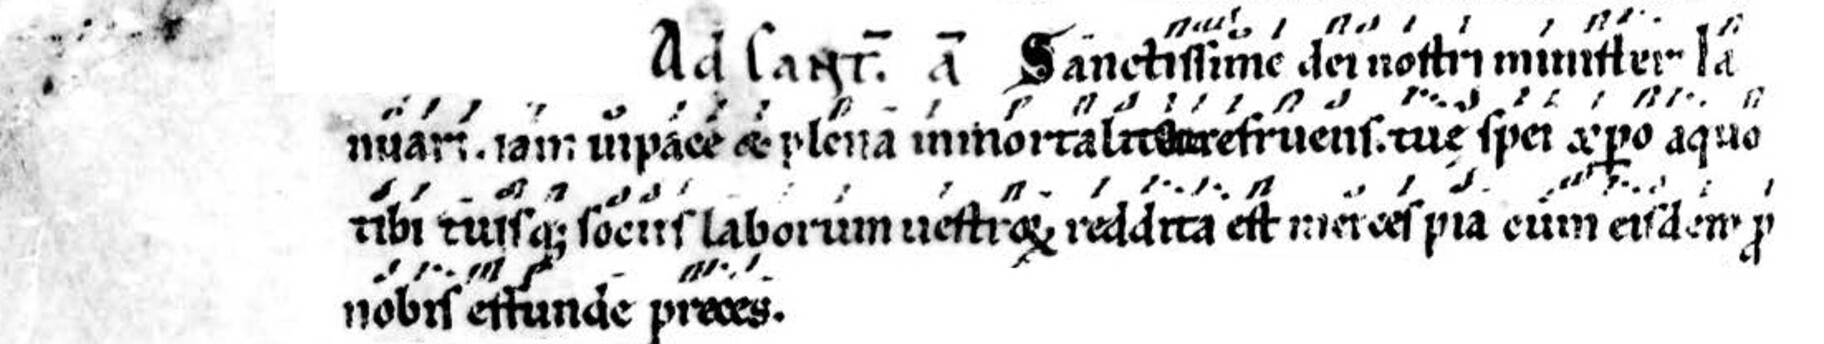 Ad sanct̄. ā Sanctissime dei nostri minister Ia
nuari. iam in pace & plena inmortalitate fruens. tue spei xp̄o a quo
tibi tuisq; sociis laborum uestroꝝ reddita est merces pia cum eisdem ꝓ
nobis effunde preces.